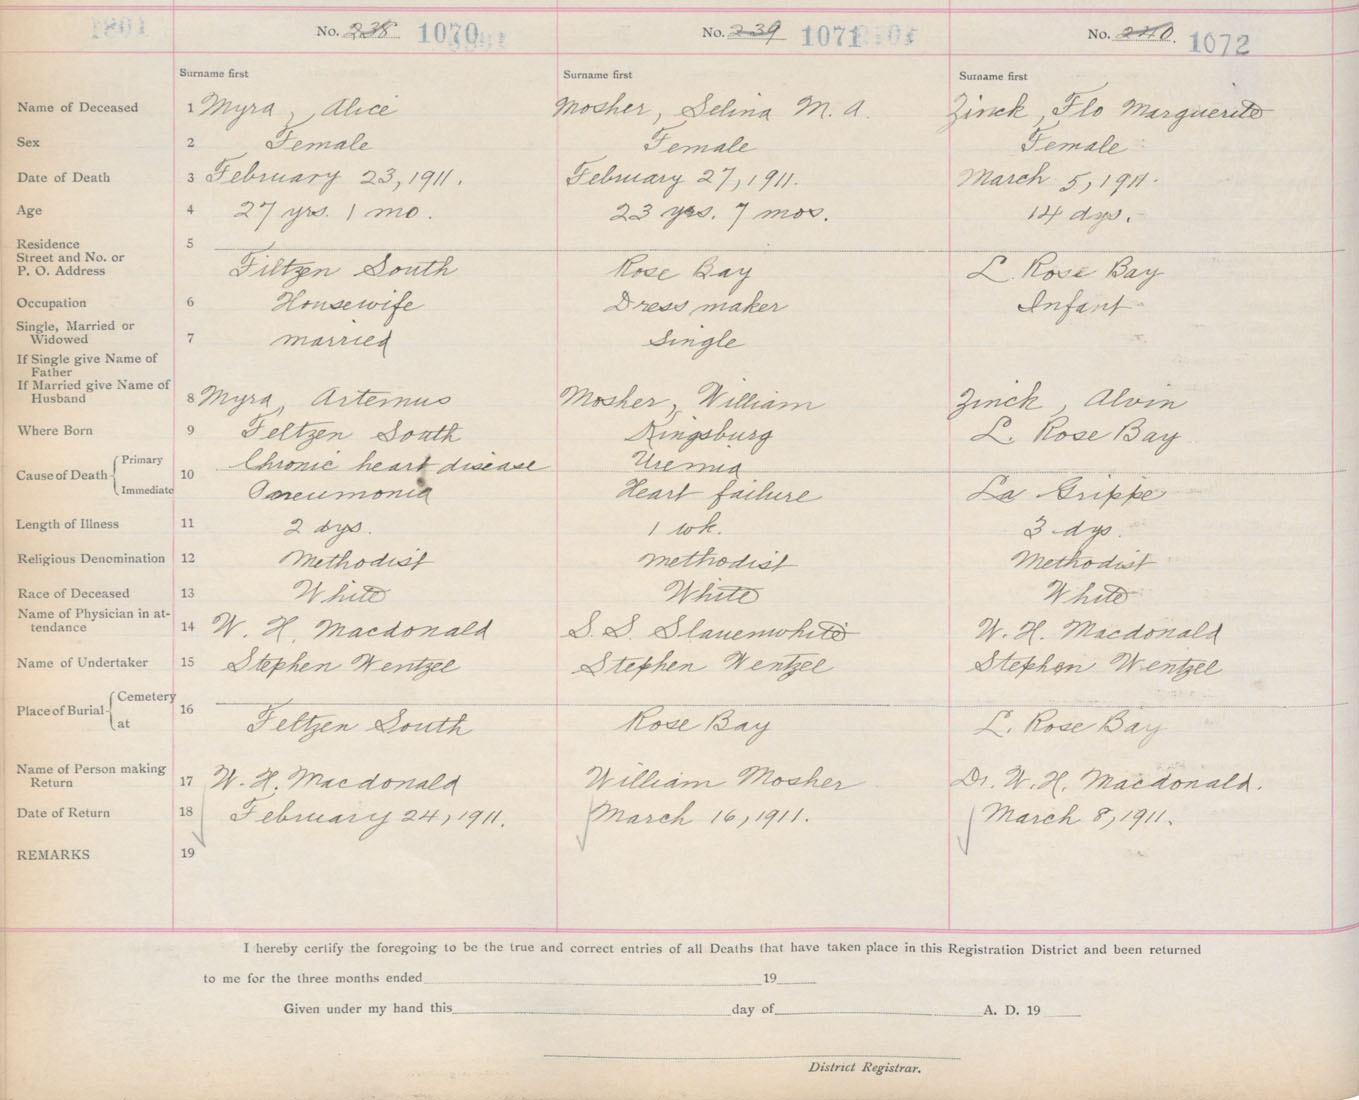 No. 238 1070 No. 239 1071 No. 240 1072
Surname first Surname first Surname first
Name of Deceased 1 Myra, Alice Mosher, Selina M. A. Zinck, Flo Marguerite
Sex 2 Female Female Female
Date of Death 3 February 23, 1911. February 27, 1911. March 5, 1911.
Age 4 27 yrs. 1 mo. 23 yrs. 7 mos. 14 dys.
Residence 5
Street and No. or
P. O. Address Filtzen South Rose Bay L. Rose Bay
Occupation 6 Housewife Dress maker Infant
Single, Married or
Widowed 7 married Single
If Single give Name of
Father
If Married give Name of
Husband 8 Myra, Artemus Mosher, William Zinck, Alvin
Where Born 9 Feltzen South Kingsburg L. Rose Bay
Cause of Death 10 Primary Chronic heart disease Uremia
Immediate Pneumonia Heart failure La Grippe
Length of Illness 11 2 dys. 1 wk. 3 dys.
Religious Denomination 12 Methodist Methodist Methodist
Race of Deceased 13 White White White
Name of Physician in at-
tendance 14 W. H. Macdonald S. S. Slauenwhite W. H. Macdonald
Name of Undertaker 15 Stephen Wentzel Stephen Wentzel Stephen Wentzel
Place of Burial 16 Cemetery
at Feltzen South Rose Bay L. Rose Bay
Name of Person making
Return 17 W. H. Macdonald William Mosher Dr. W. H. Macdonald.
Date of Return 18 February 24, 1911. March 16, 1911. March 8, 1911.
REMARKS 19
I hereby certify the foregoing to be the true and correct entries of all Deaths that have taken place in this Registration District and been returned
to me for the three months ended 19
Given under my hand this day of A. D. 19
District Registrar.